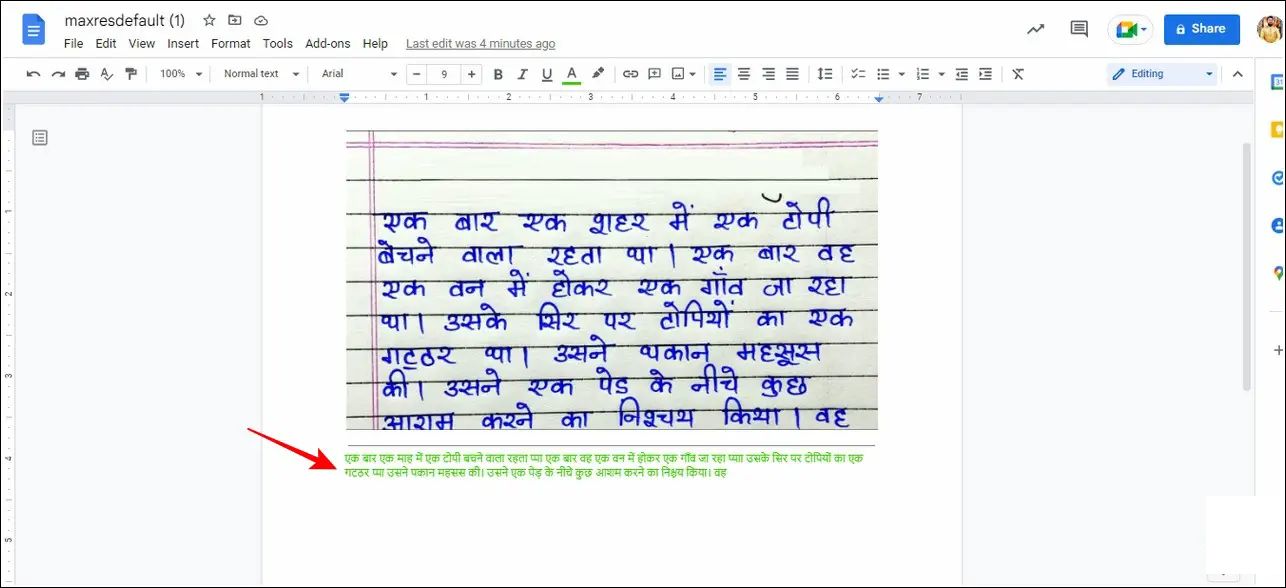 maxresdefault (1)
File Edit View Insert Format Tools Add-ons Help Last edit was 4 minutes ago
Share
100% Normal text Arial 9 B I U A Editing
1 1 2 3 4 5 6 7
एक बार एक शहर में एक टोपी
बेचने वाला रहता था। एक बार वह
एक वन में होकर एक गाँव जा रहा
था। उसके सिर पर टोपियों का एक
गट्ठर था। उसने थकान महसूस
की। उसने एक पेड के नीचे कुछ
आराम करने का निश्चय किया। वह
एक बार एक माह में एक टोपी बचने वाला रहता प्पा एक बार वह एक वन में होकर एक गाँव जा रहा प्याा उसके सिर पर टोपियों का एक
गटठर प्पा उसने पकान महसस की। उसने एक पेड़ के नीचे कुछ आशम करने का निश्चय किया। वह
1
2
3
4
5
31